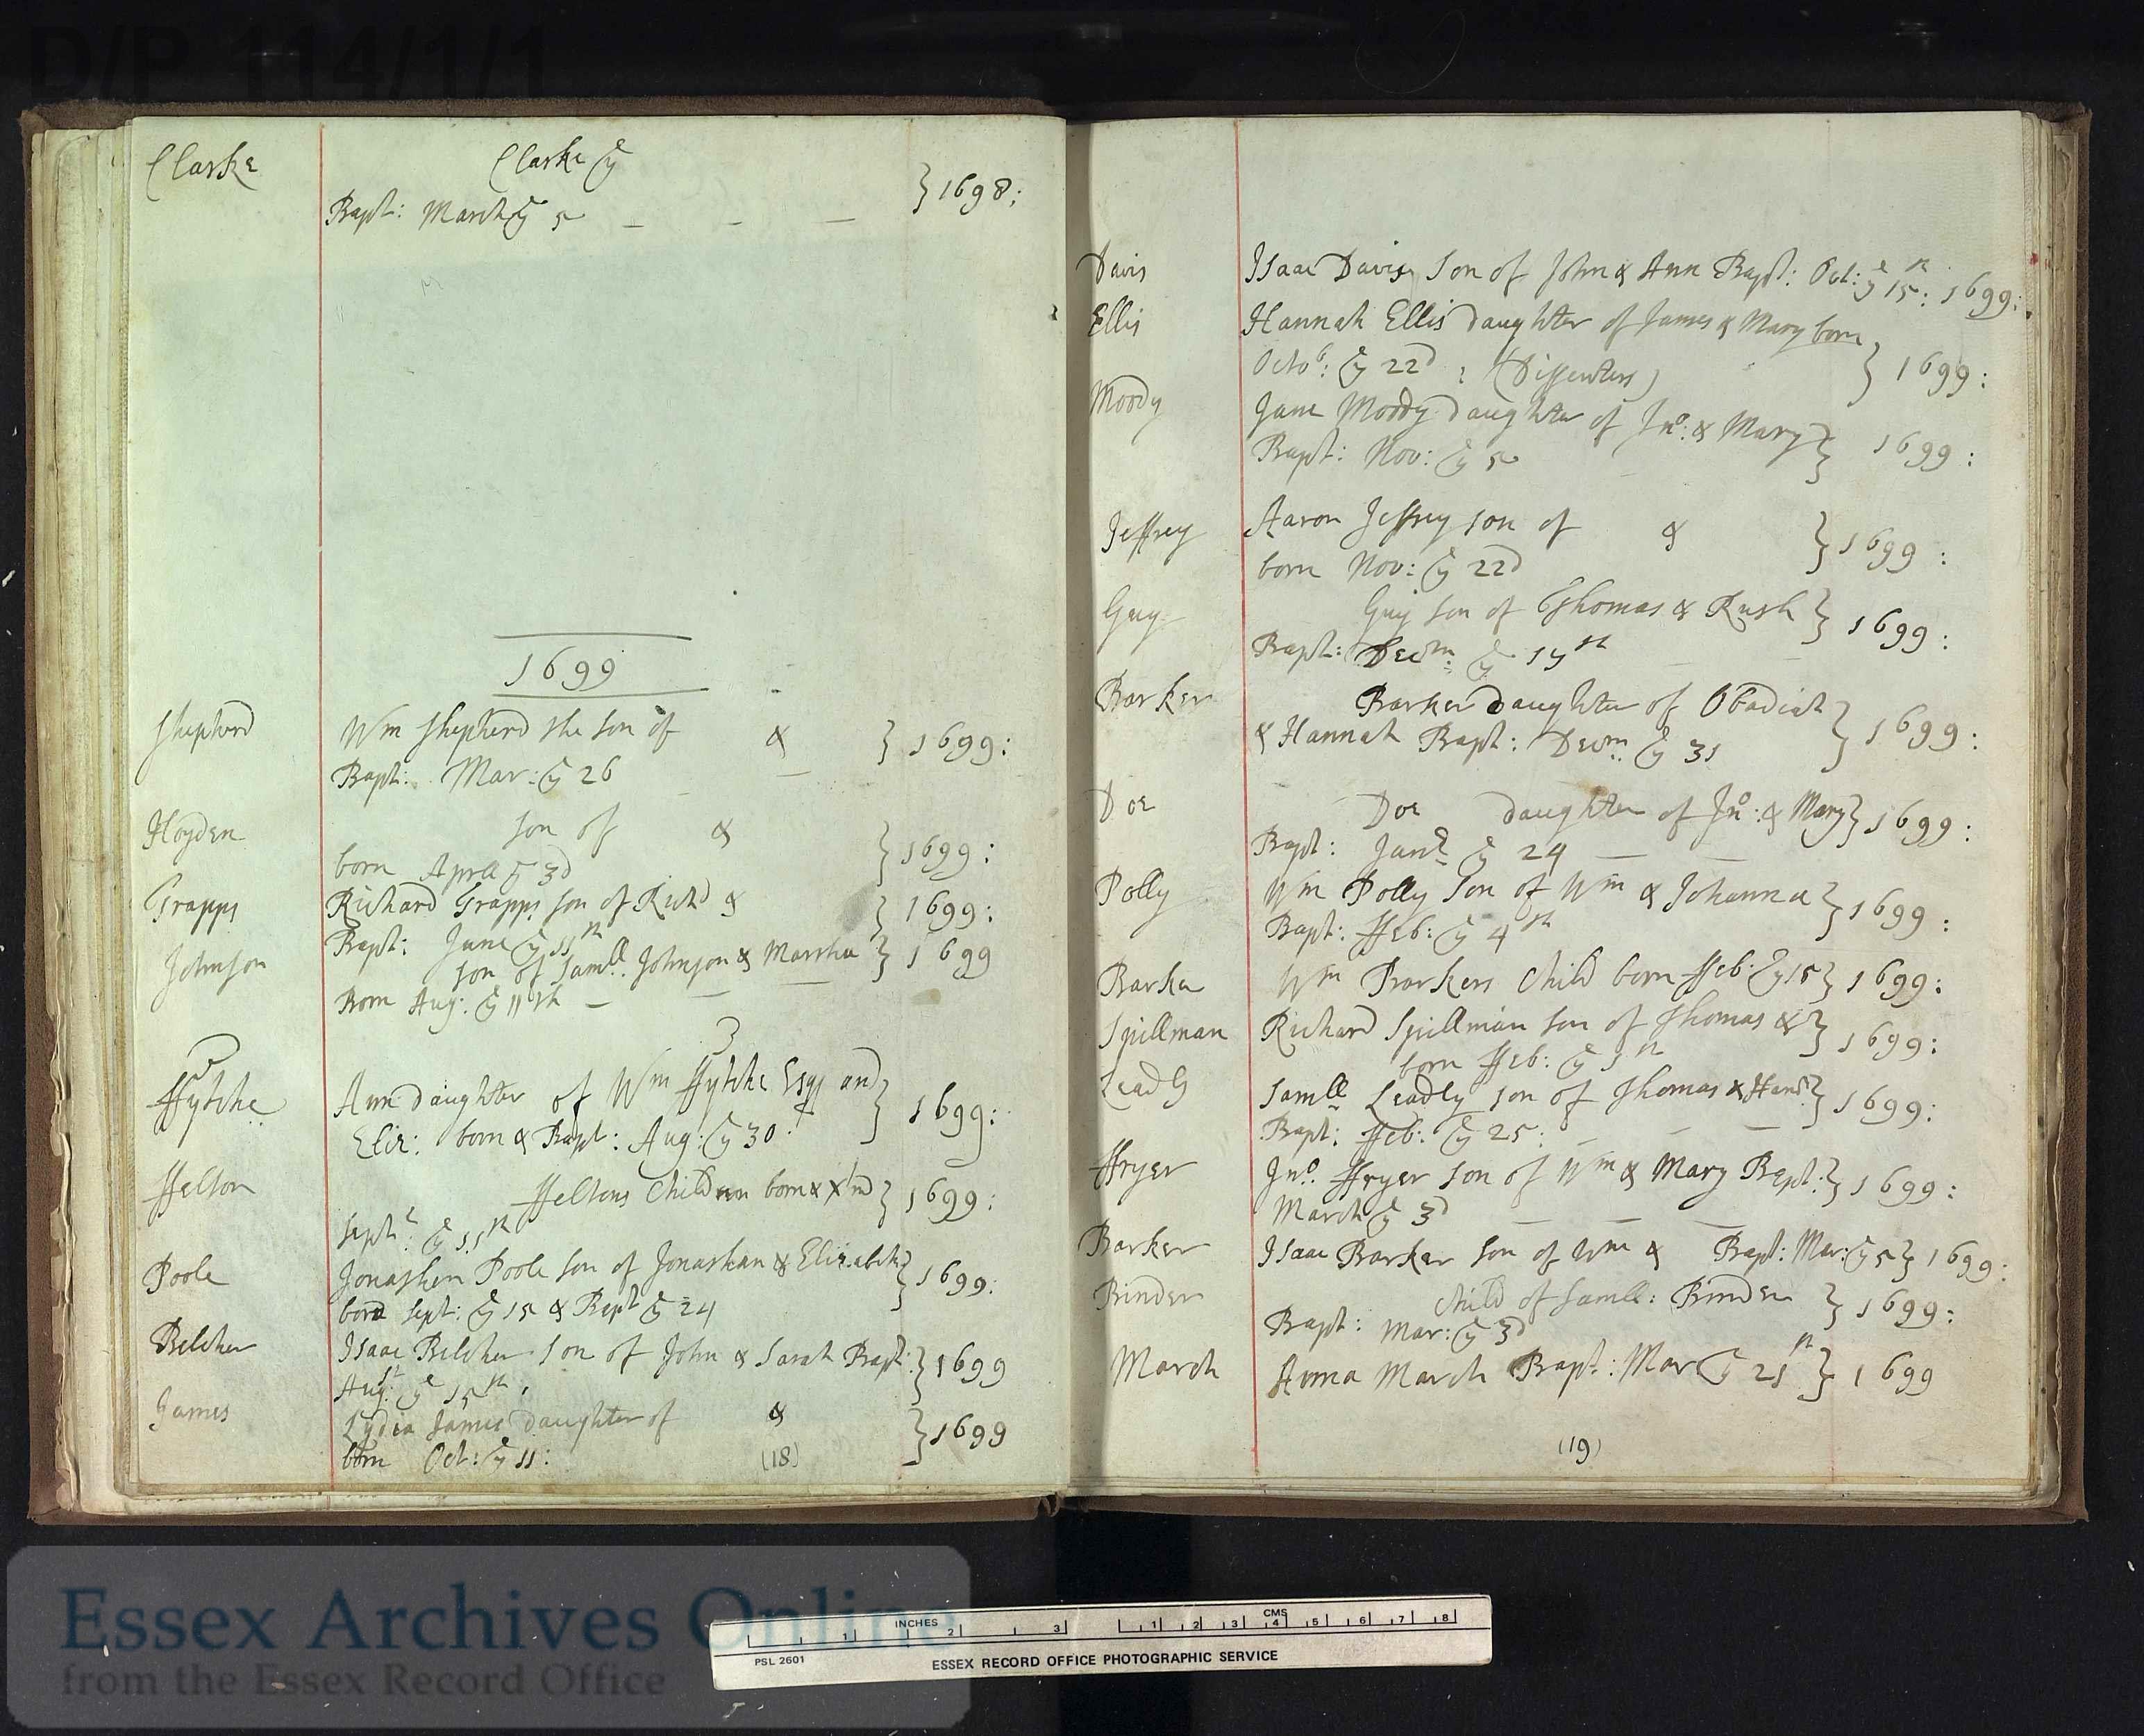 D/P 114/1/1
Clarke Clarke ye
Bapt: March ye 5 } 1698:
1699
Shepherd Wm Shepherd the son of & } 1699:
Bapt: Mar: ye 26
Hoyden son of & } 1699:
born Aprll ye 3d
Grapps Richard Grapps son of Richd & } 1699:
Bapt: June ye 11th
Johnson son of Samll: Johnson & Martha } 1699
Born Aug: ye 11th
Ffytche Ann daughter of Wm Ffytche Esqr and } 1699:
Eliz: born & Bapt: Aug: ye 30
Ffelton Ffeltons Children born & X'nd } 1699:
Sept: ye 11th
Poole Jonathan Poole son of Jonathan & Elizabeth } 1699:
born Sept: ye 15 & Bapt ye 24
Belcher Isaac Belcher son of John & Sarah Bapt: } 1699
Augst: ye 15th
James Lydia James daughter of & } 1699
born Oct: ye 11:
(18)
Davis Isaac Davis son of John & Ann Bapt: Oct: ye 15th: 1699:
Ellis Hannah Ellis daughter of James & Mary born
Octob: ye 22d : (Dissenters) } 1699:
Moody Jane Moody daughter of Jno: & Mary } 1699:
Bapt: Nov: ye 5
Jeffrey Aaron Jeffrey son of & } 1699:
born Nov: ye 22d
Guy Guy son of Thomas & Ruth } 1699:
Bapt: Decm: ye 17th
Barker Barker daughter of Obadiah } 1699:
& Hannah Bapt: Decm: ye 31
Doe Doe daughter of Jno: & Mary } 1699:
Bapt: Jan: ye 24
Polly Wm Polly son of Wm & Johanna } 1699:
Bapt: Ffeb: ye 4th
Barker Wm Barkers Child born Ffeb: ye 15 } 1699:
Spillman Richard Spillman son of Thomas & } 1699:
born Ffeb: ye
Samll Leadly son of Thomas & Han } 1699:
Bapt: Ffeb: ye 25:
Ffryer Jno: Ffryer son of Wm & Mary Bapt: } 1699:
March ye 3d
Barker Isaac Barker son of Wm & Bapt: Mar: ye 5 } 1699:
Binder Child of Samll: Binder } 1699:
Bapt: Mar: ye 3d
March Anna March Bapt: Mar ye 21th } 1699
(19)
Essex Archives Online
from the Essex Record Office
INCHES 1 2 3 CMS 1 2 3 4 5 6 7 8
PSL 2601 ESSEX RECORD OFFICE PHOTOGRAPHIC SERVICE